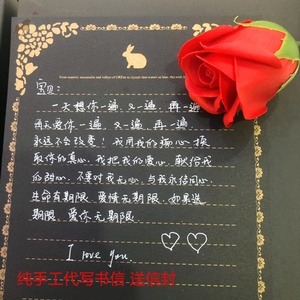 宝贝:
一天想你一遍 又一遍 再一遍
每天爱你一遍 又一遍 再一遍
永远不会改变! 我用我的痴心 换
取你的真心, 我把我的爱心 献给我
的甜心, 不要对我无心, 与我永结同心
生命有期限, 爱情无期限, 如果说
期限, 爱你无期限
I love you.
纯手工代写书信 送信封